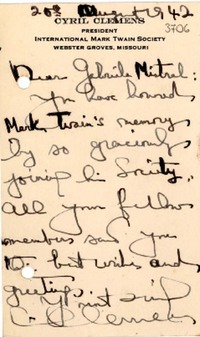 20th August 1942
CYRIL CLEMENS
3706
PRESIDENT
INTERNATIONAL MARK TWAIN SOCIETY
WEBSTER GROVES, MISSOURI
Dear Gabriela Mistral:
You have honored
Mark Twain's memory
by so graciously
joining his Society.
All your fellow
members send you
best wishes and
greetings.
Clemens